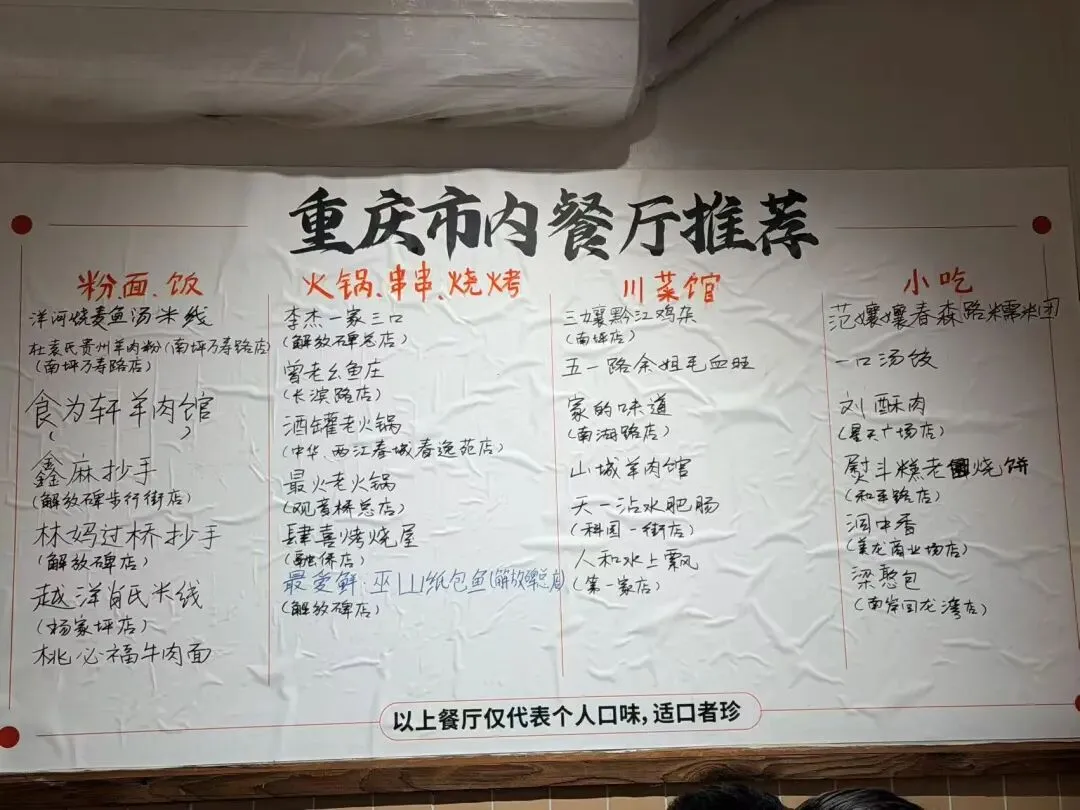 重庆市内餐厅推荐
粉面、饭
洋河烧麦鱼汤米线
杜袁氏贵州羊肉粉(南坪万寿路店)
(南坪万寿路店)
食为轩羊肉馆
( )
鑫麻抄手
(解放碑步行街店)
林妈过桥抄手
(解放碑店)
越洋肖氏米线
(杨家坪店)
桃必福牛肉面
火锅、串串、烧烤
李杰一家三口
(解放碑总店)
曾老幺鱼庄
(长滨路店)
酒罐老火锅
(中华、西江春城春逸苑店)
最火老火锅
(观音桥总店)
肆喜烤烧屋
(融侨店)
最爱鲜:巫山纸包鱼(解放碑总店)
(解放碑店)
川菜馆
三孃黔江鸡杂
(南坪店)
五一路余姐毛血旺
家的味道
(南湖路店)
山城羊肉馆
天一沾水肥肠
(科园一街店)
人和水上飘
(第一家店)
小吃
范孃孃春森路糍糯米团
一口汤饺
刘酥肉
(星天广场店)
熨斗糕老圈烧饼
(和平路店)
阆中香
(美龙商业场店)
梁憨包
(南岸回龙湾店)
以上餐厅仅代表个人口味,适口者珍